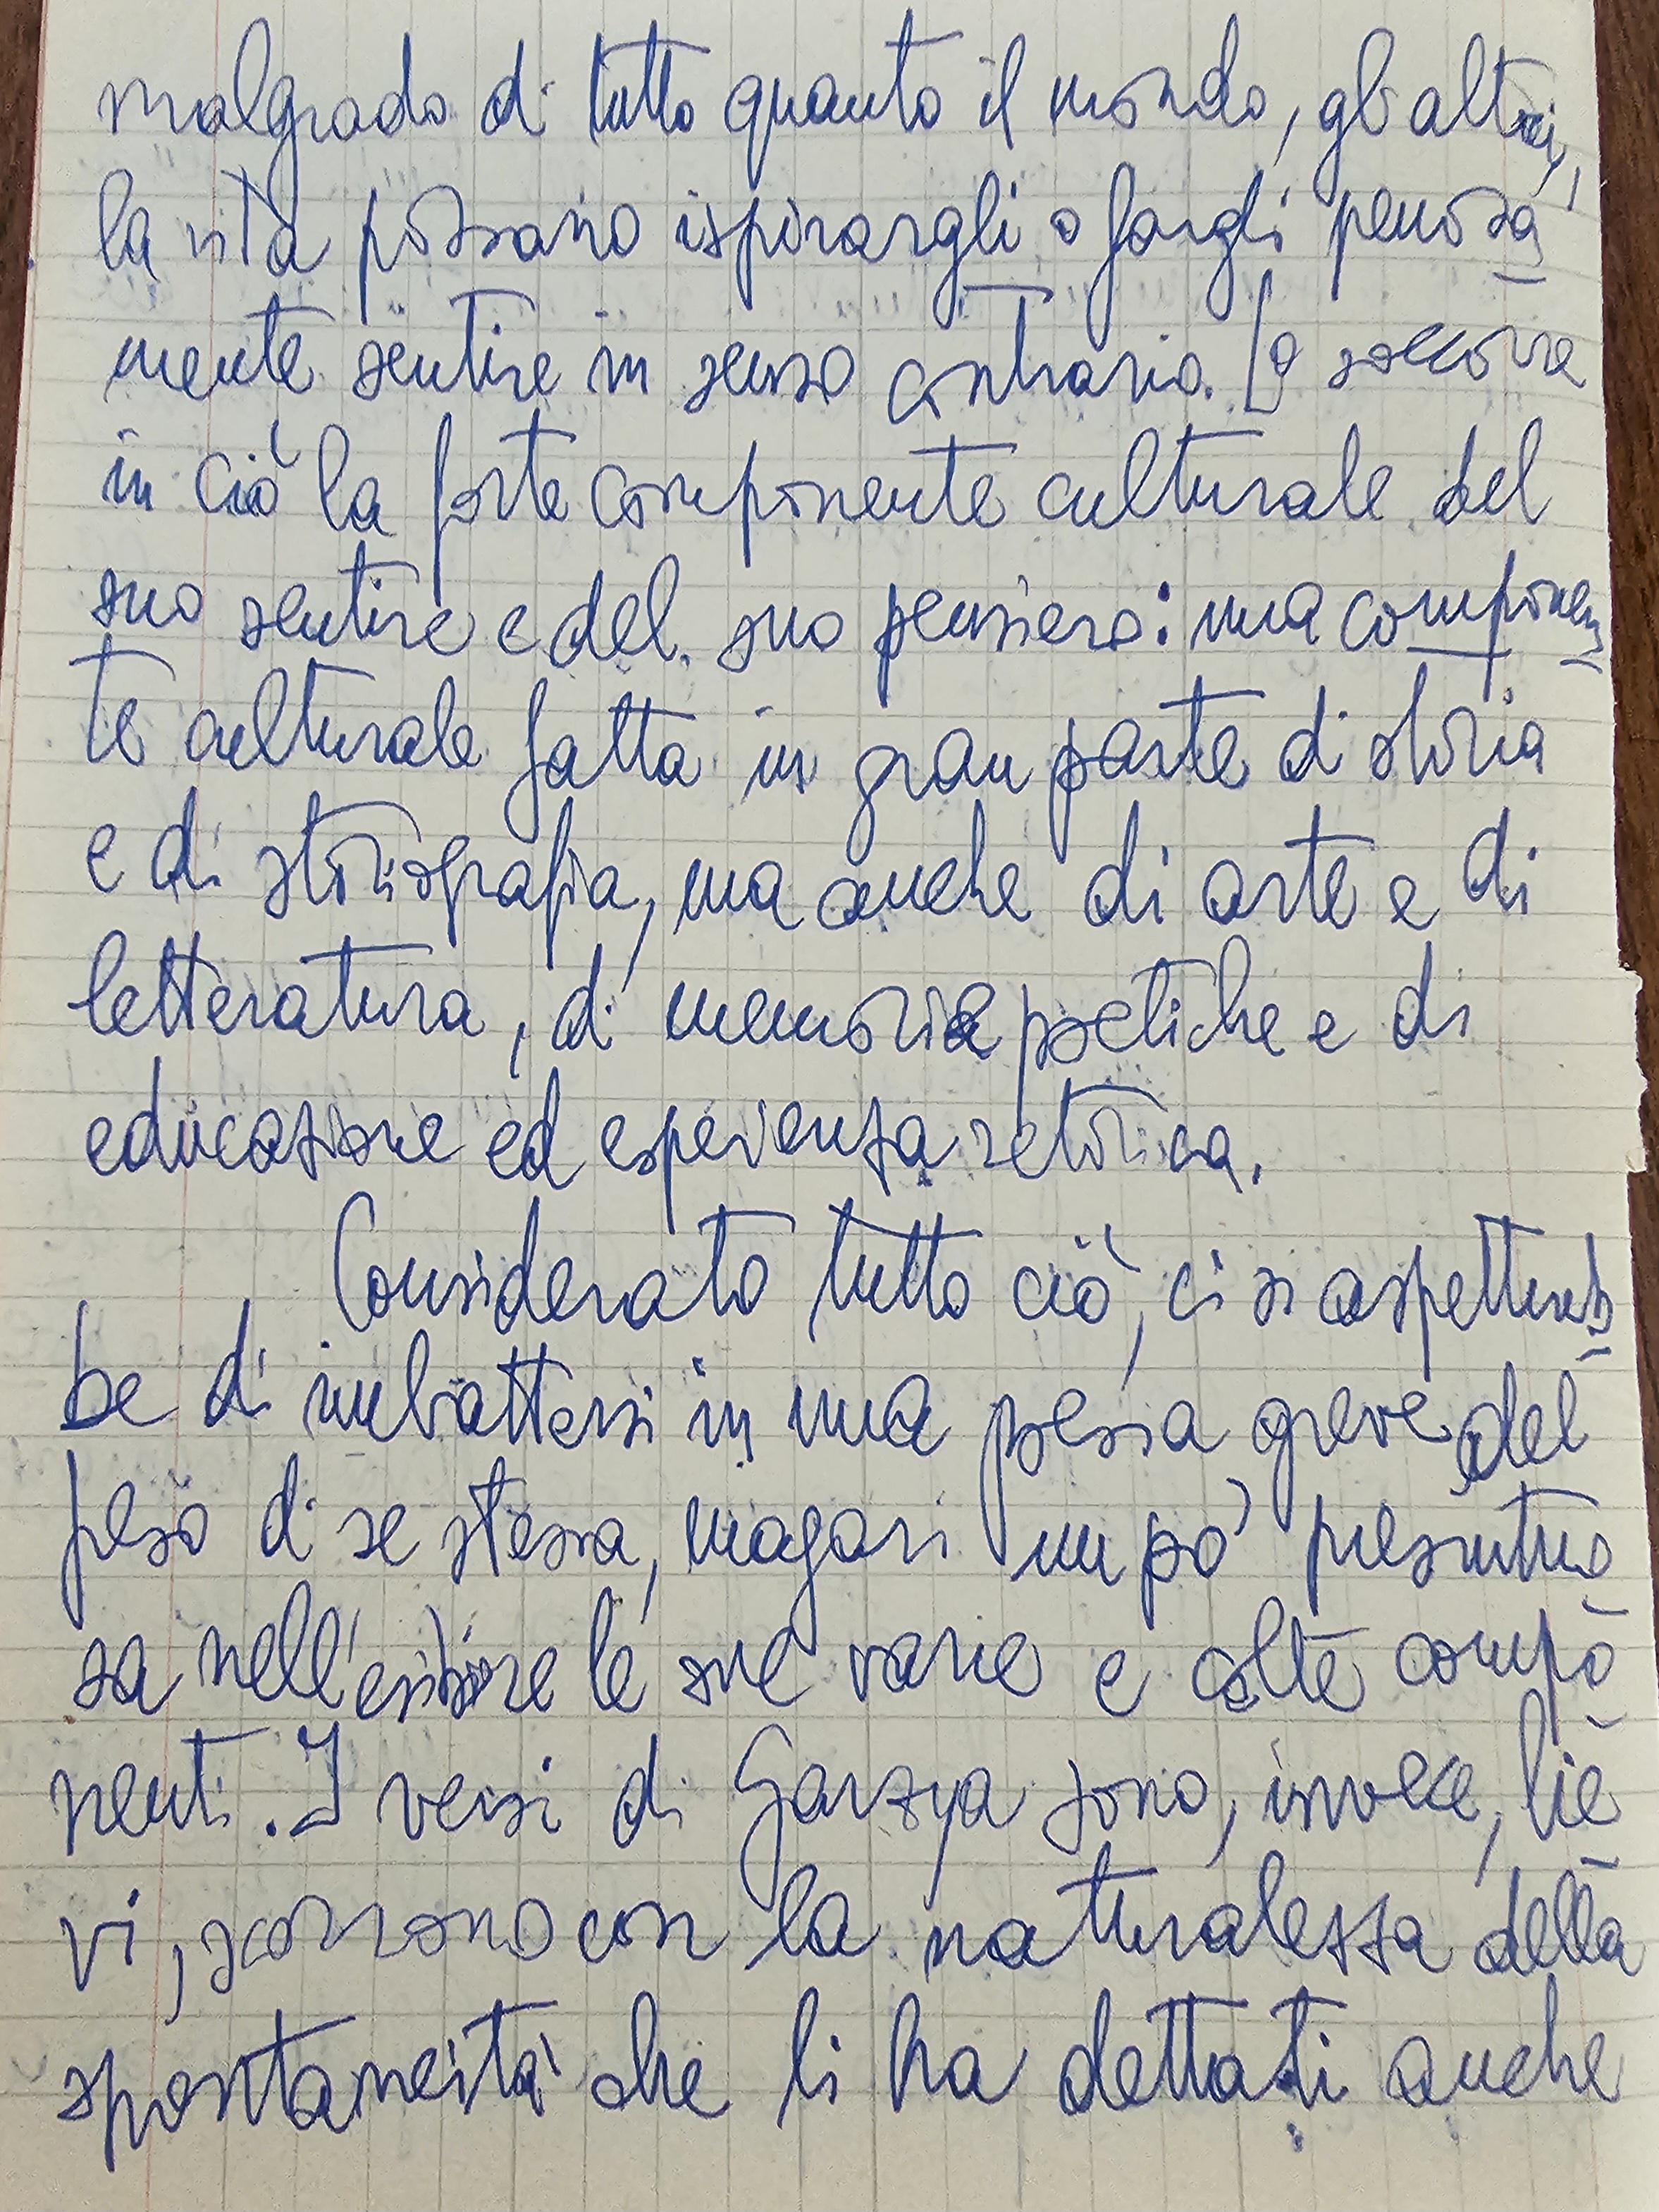 malgrado di tutto quanto il mondo, gli altri,
la vita possano ispirargli o fargli penosa
mente sentire in senso contrario. Lo soccorre
in ciò la forte componente culturale del
suo sentire e del suo pensiero: una componen
te culturale fatta in gran parte di storia
e di storiografia, ma anche di arte e di
letteratura, di memorie poetiche e di
educazione ed esperienza retorica.
Considerato tutto ciò, ci si aspettereb
be di imbattersi in una poesia greve del
peso di se stessa, magari un po' presuntuo
sa nell'esibire le sue varie e colte compo
nenti. I versi di Garzya sono, invece, lie
vi, scorrono con la naturalezza della
spontaneità che li ha dettati anche